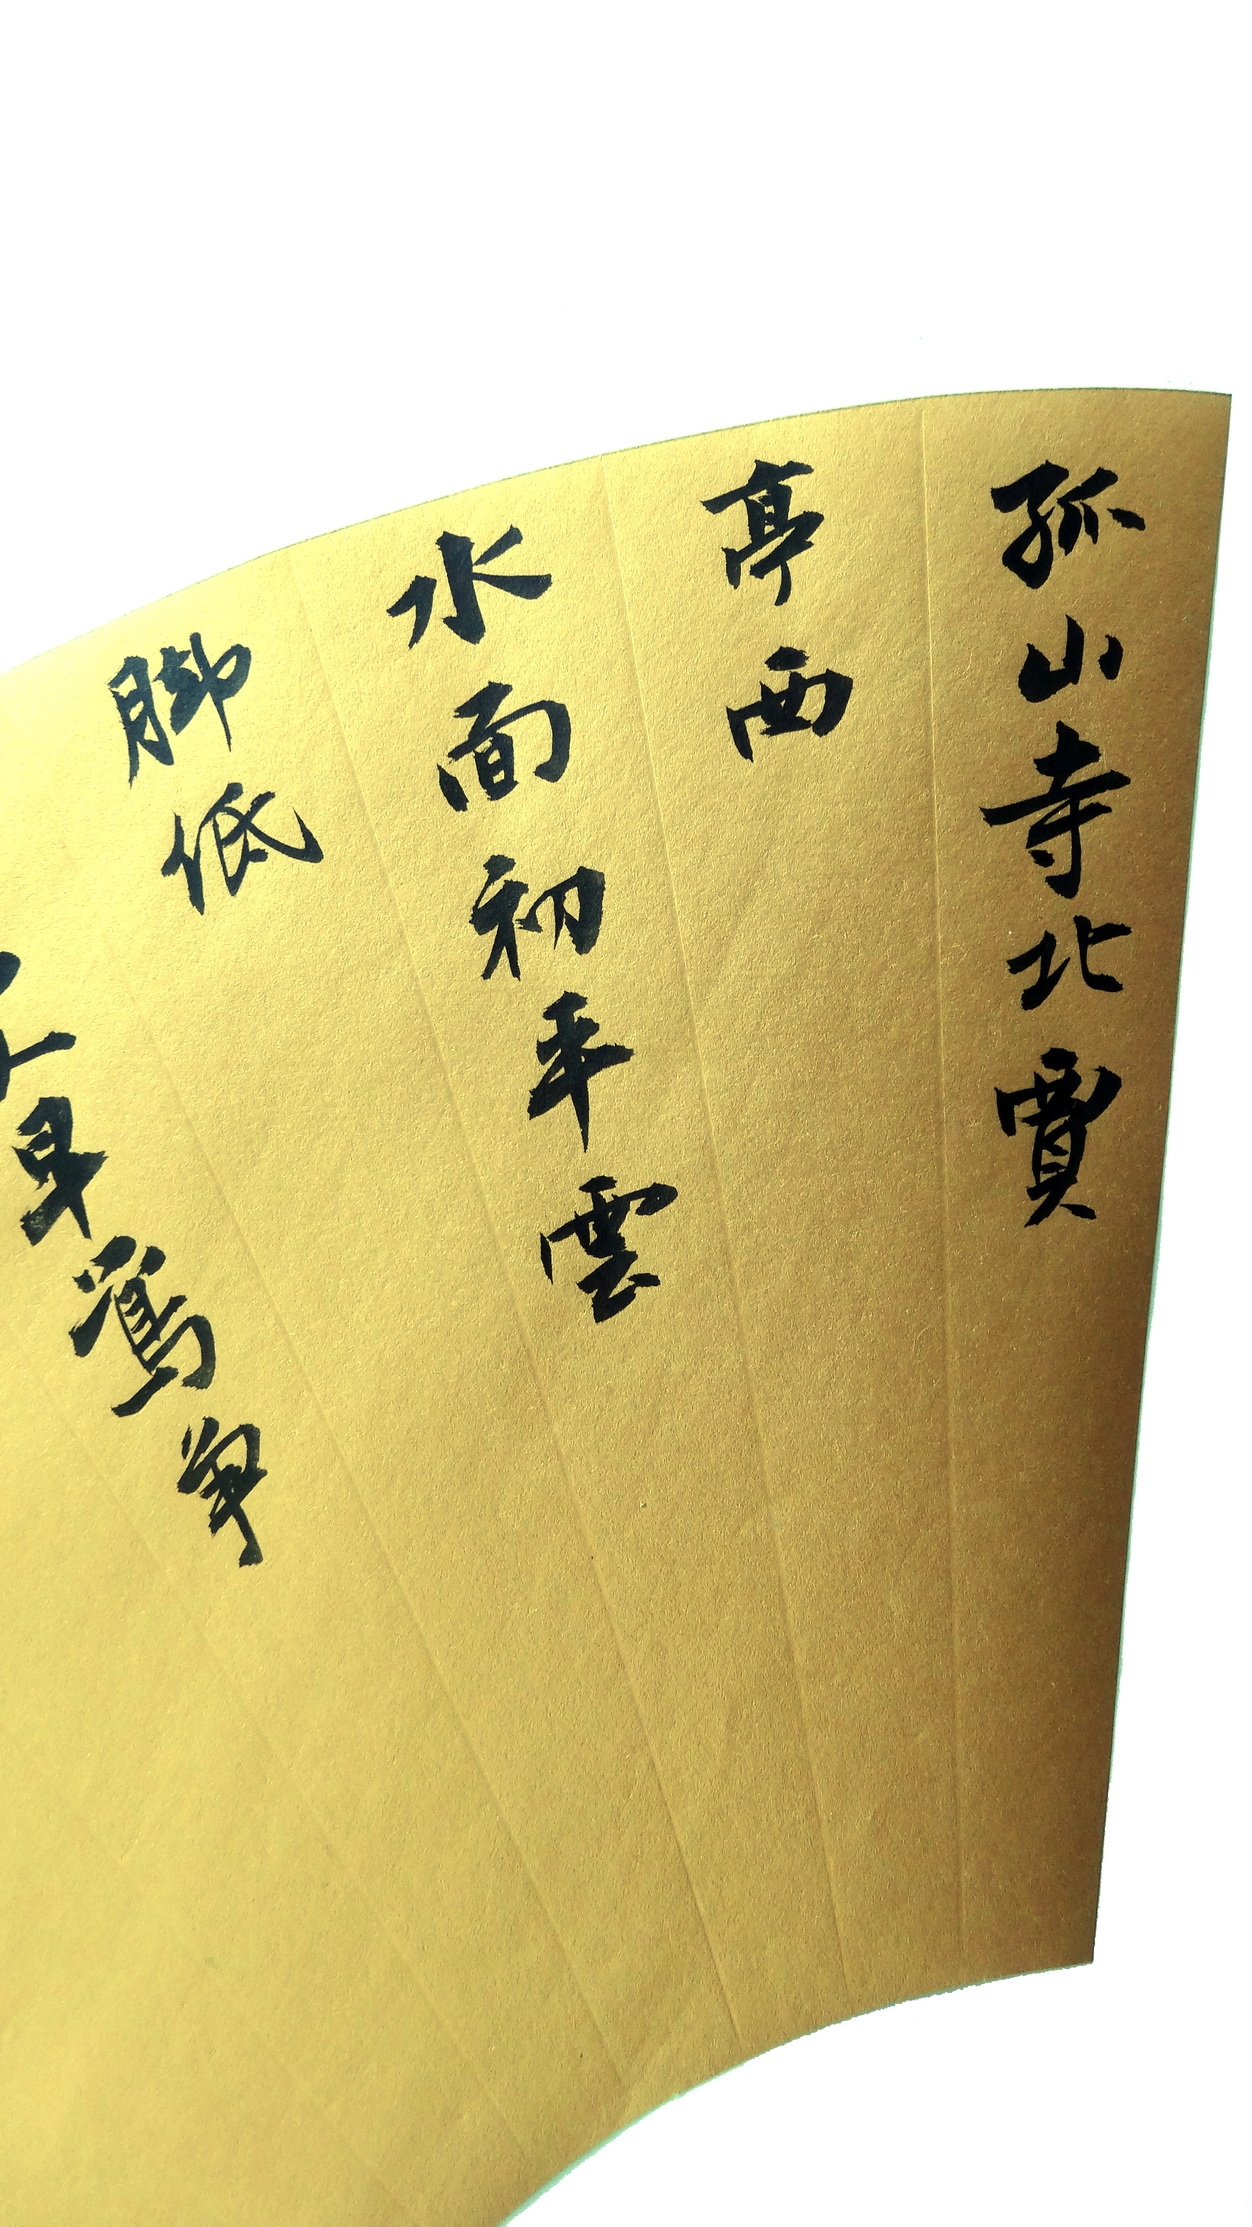 孤山寺北賈
亭西
水面初平雲
脚低
早鶯爭